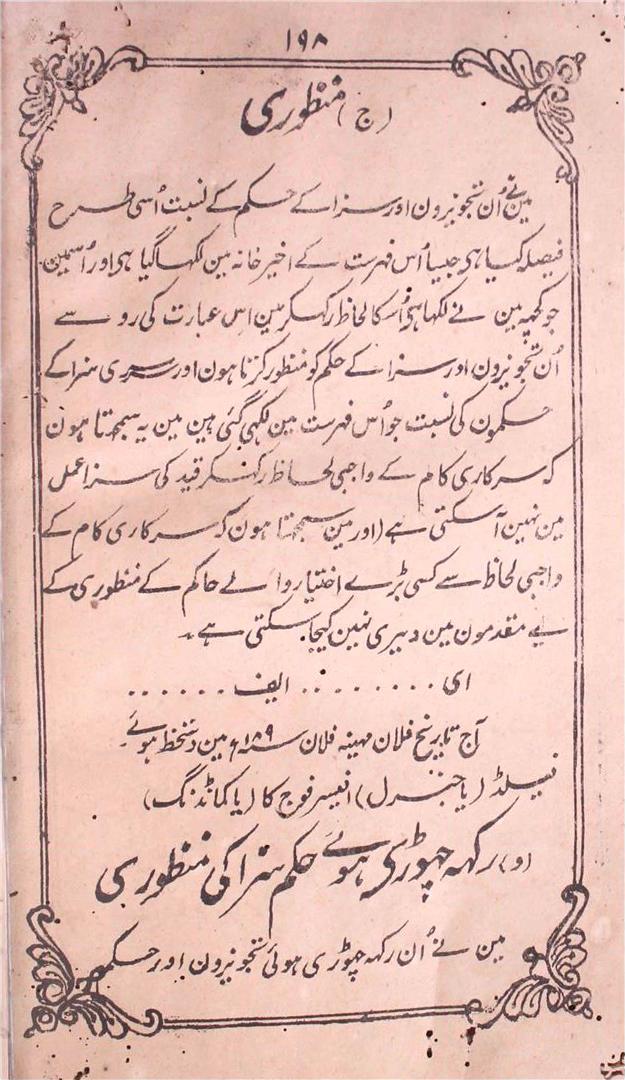 ۱۹۸
(ج) منظوری
مین نے اُن تجویزون اور سزا کے حکم کے نسبت اُسی طرح
فیصلہ کیا ہی جیسا اُس فہرست کے اخیر خانہ مین لکھا گیا ہی اور اُسمین
جو کچہہ مین نے لکھا ہی اُسکا لحاظ رکھکر مین اِس عبارت کی رو سے
اُن تجویزون اور سزا کے حکم کو منظور کرتا ہون اور سرسری سزا کے
حکمون کی نسبت جو اُس فہرست مین لکھی گئی ہین مین یہ سمجھتا ہون
کہ سرکاری کام کے واجبی لحاظ رکھکر قید کی سزا عمل
مین نہین آسکتی ہے (اور مین سمجھتا ہون کہ سرکاری کام کے
واجبی لحاظ سے کسی بڑے اختیار والے حاکم کے منظوری کے
لیے مقدمون مین دیری نہین کیجا سکتی ہے۔
ای ......... ایف ......
آج تاریخ فلان مہینہ فلان سنہ ۱۸۹ء مین دستخط ہوئے۔
فیلڈ (یا جنرل) افیسر فوج کا (یا کمانڈنگ)
(و) رکھہ چھوڑی ہوئے حکم سزا کی منظوری
مین نے اُن رکھہ چھوڑی ہوئی تجویزون اور حکم